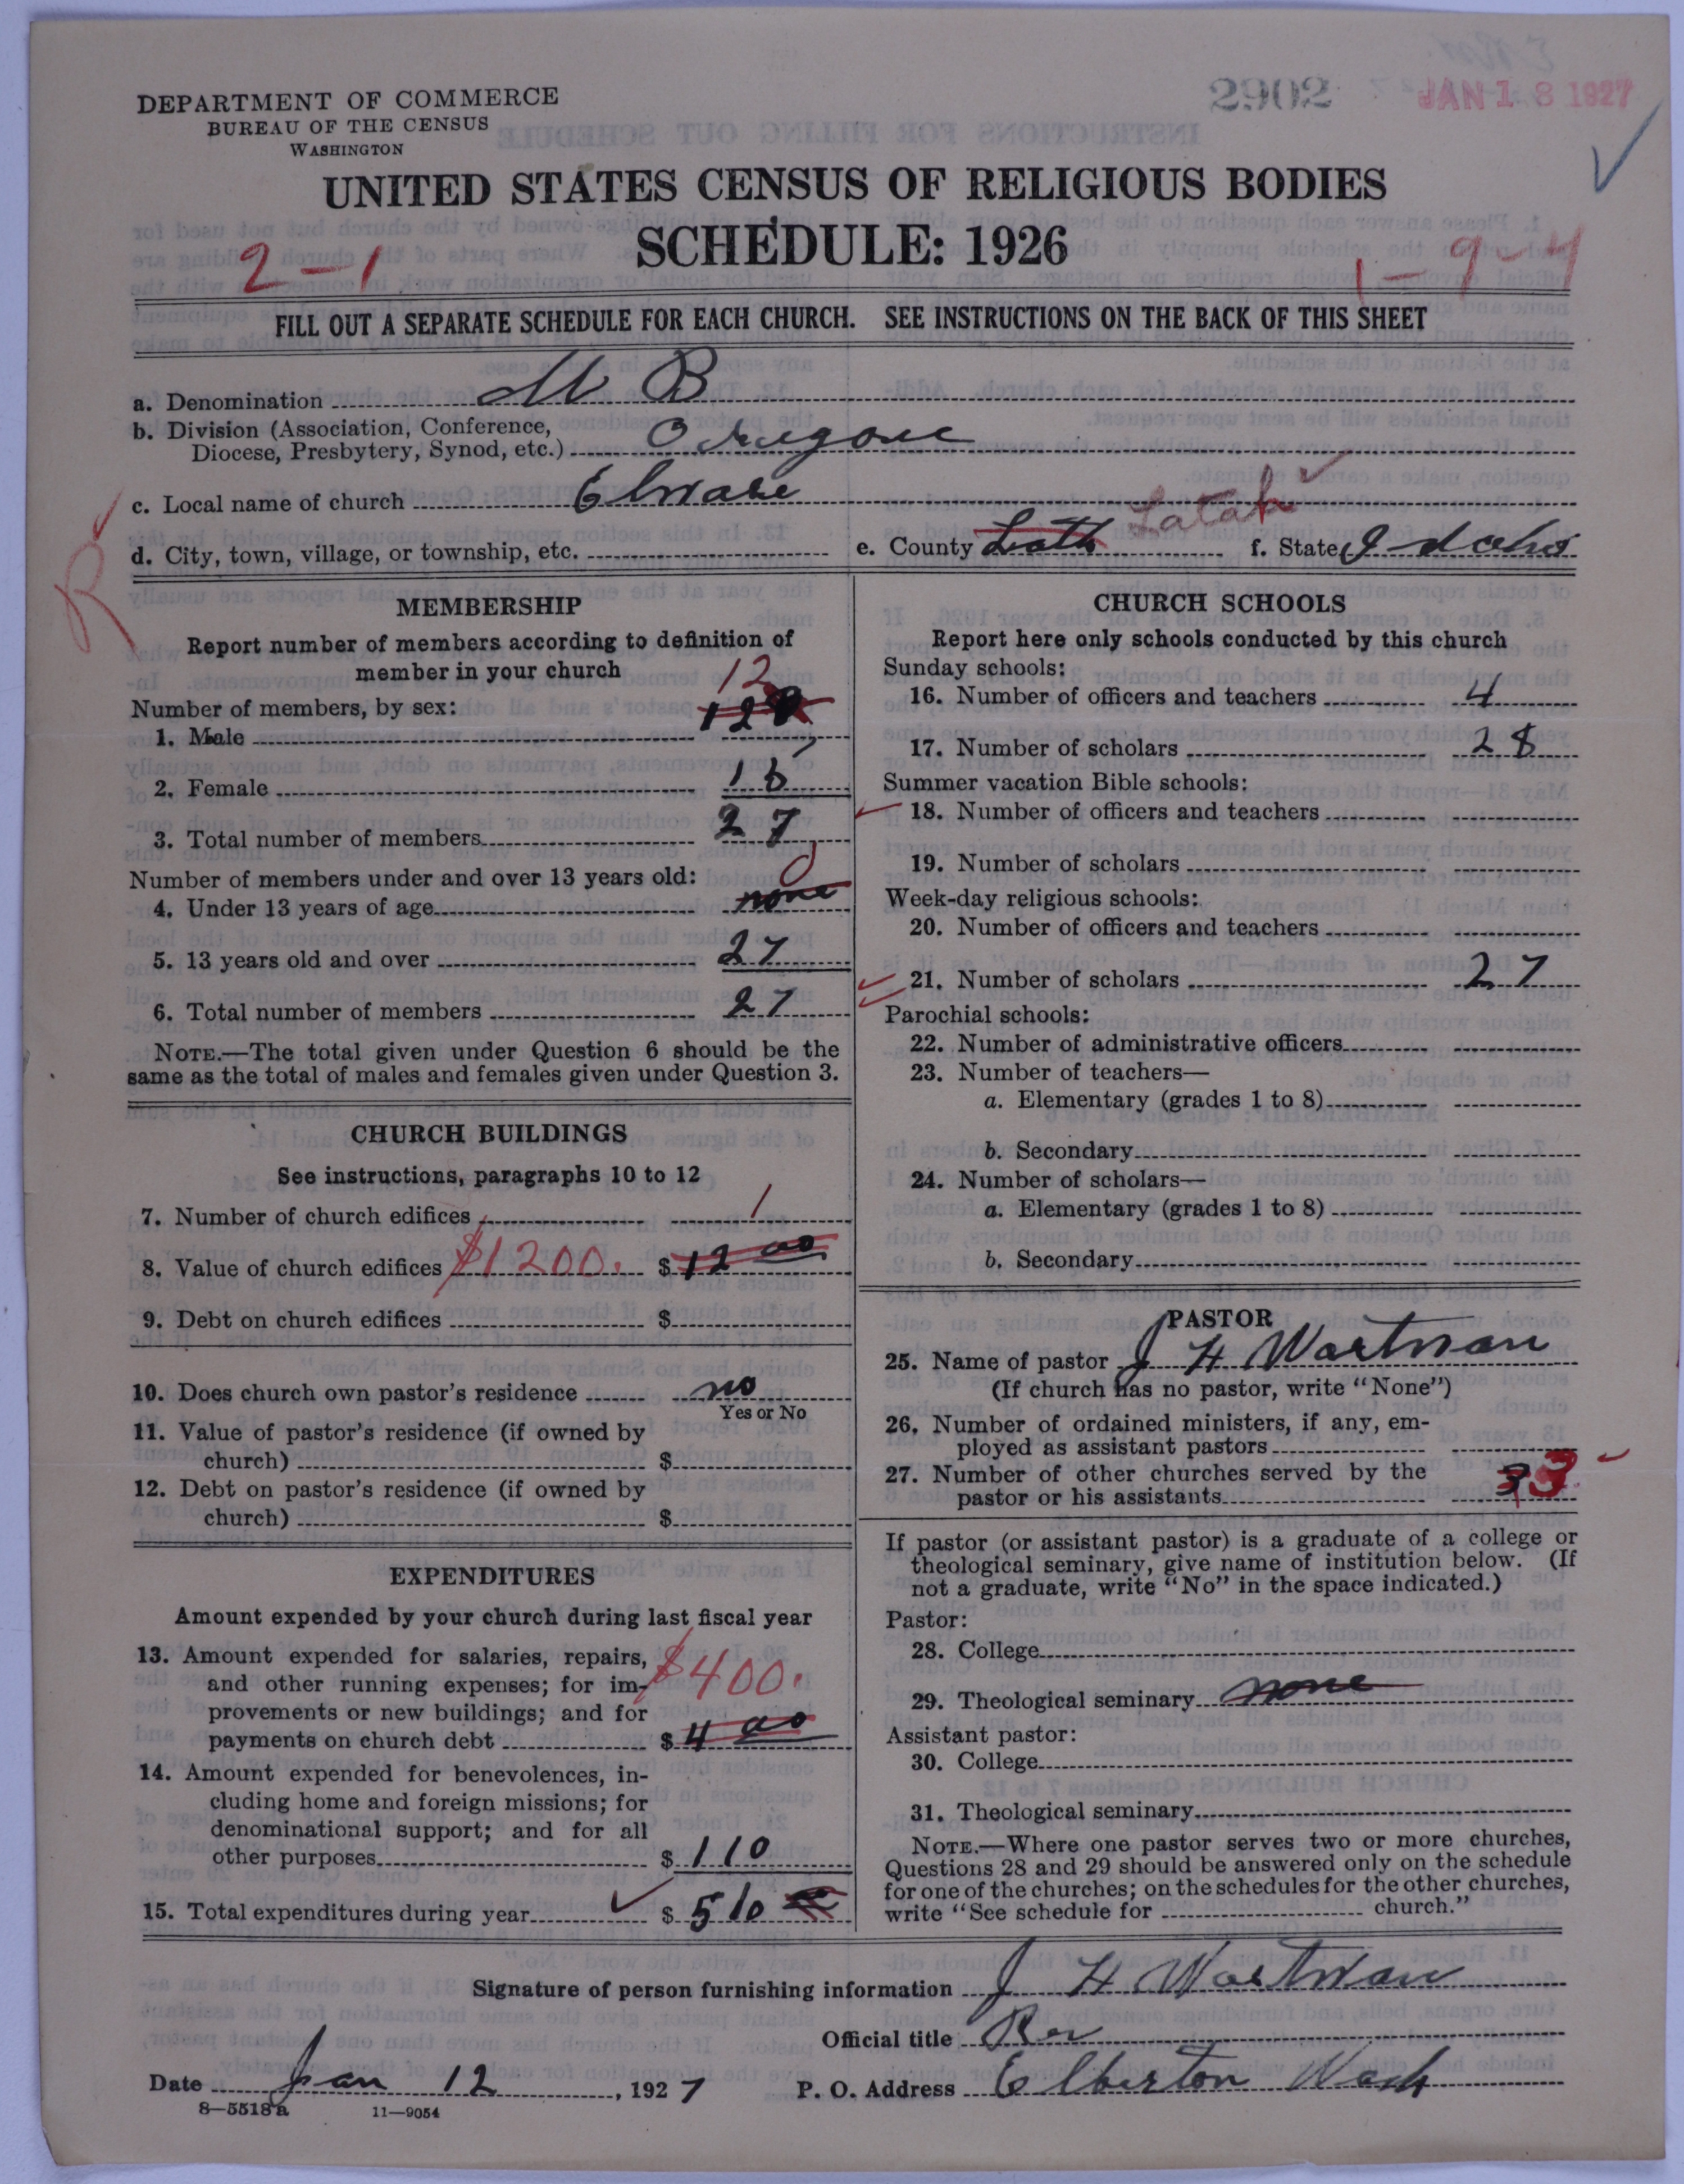 2902 JAN 18 1927
DEPARTMENT OF COMMERCE
BUREAU OF THE CENSUS
WASHINGTON
UNITED STATES CENSUS OF RELIGIOUS BODIES
SCHEDULE: 1926
2-1 1-9-4
FILL OUT A SEPARATE SCHEDULE FOR EACH CHURCH. SEE INSTRUCTIONS ON THE BACK OF THIS SHEET
a. Denomination B
b. Division (Association, Conference,
Diocese, Presbytery, Synod, etc.)
c. Local name of church
d. City, town, village, or township, etc. e. County Lath Latah f. State Idaho
R
MEMBERSHIP
Report number of members according to definition of
member in your church
Number of members, by sex: 12
1. Male 12
2. Female 16
3. Total number of members 27
Number of members under and over 13 years old: 0
4. Under 13 years of age none
5. 13 years old and over 27
6. Total number of members 27
NOTE.—The total given under Question 6 should be the
same as the total of males and females given under Question 3.
CHURCH BUILDINGS
See instructions, paragraphs 10 to 12
7. Number of church edifices 1
8. Value of church edifices $1200. $ 12 00
9. Debt on church edifices $
10. Does church own pastor's residence no
Yes or No
11. Value of pastor's residence (if owned by
church) $
12. Debt on pastor's residence (if owned by
church) $
EXPENDITURES
Amount expended by your church during last fiscal year
13. Amount expended for salaries, repairs,
and other running expenses; for im- $400.
provements or new buildings; and for
payments on church debt $ 4 00
14. Amount expended for benevolences, in-
cluding home and foreign missions; for
denominational support; and for all
other purposes $ 110
15. Total expenditures during year $ 510
CHURCH SCHOOLS
Report here only schools conducted by this church
Sunday schools:
16. Number of officers and teachers 4
17. Number of scholars 28
Summer vacation Bible schools:
18. Number of officers and teachers
19. Number of scholars
Week-day religious schools:
20. Number of officers and teachers
21. Number of scholars 27
Parochial schools:
22. Number of administrative officers
23. Number of teachers—
a. Elementary (grades 1 to 8)
b. Secondary
24. Number of scholars—
a. Elementary (grades 1 to 8)
b. Secondary
PASTOR
25. Name of pastor J H Wortman
(If church has no pastor, write "None")
26. Number of ordained ministers, if any, em-
ployed as assistant pastors
27. Number of other churches served by the
pastor or his assistants 3 3
If pastor (or assistant pastor) is a graduate of a college or
theological seminary, give name of institution below. (If
not a graduate, write "No" in the space indicated.)
Pastor:
28. College
29. Theological seminary none
Assistant pastor:
30. College
31. Theological seminary
NOTE.—Where one pastor serves two or more churches,
Questions 28 and 29 should be answered only on the schedule
for one of the churches; on the schedules for the other churches,
write "See schedule for church."
Signature of person furnishing information J H Wortman
Official title Rev
Date Jan 12, 1927 P. O. Address Elberton Wash
8—5518a 11—9054